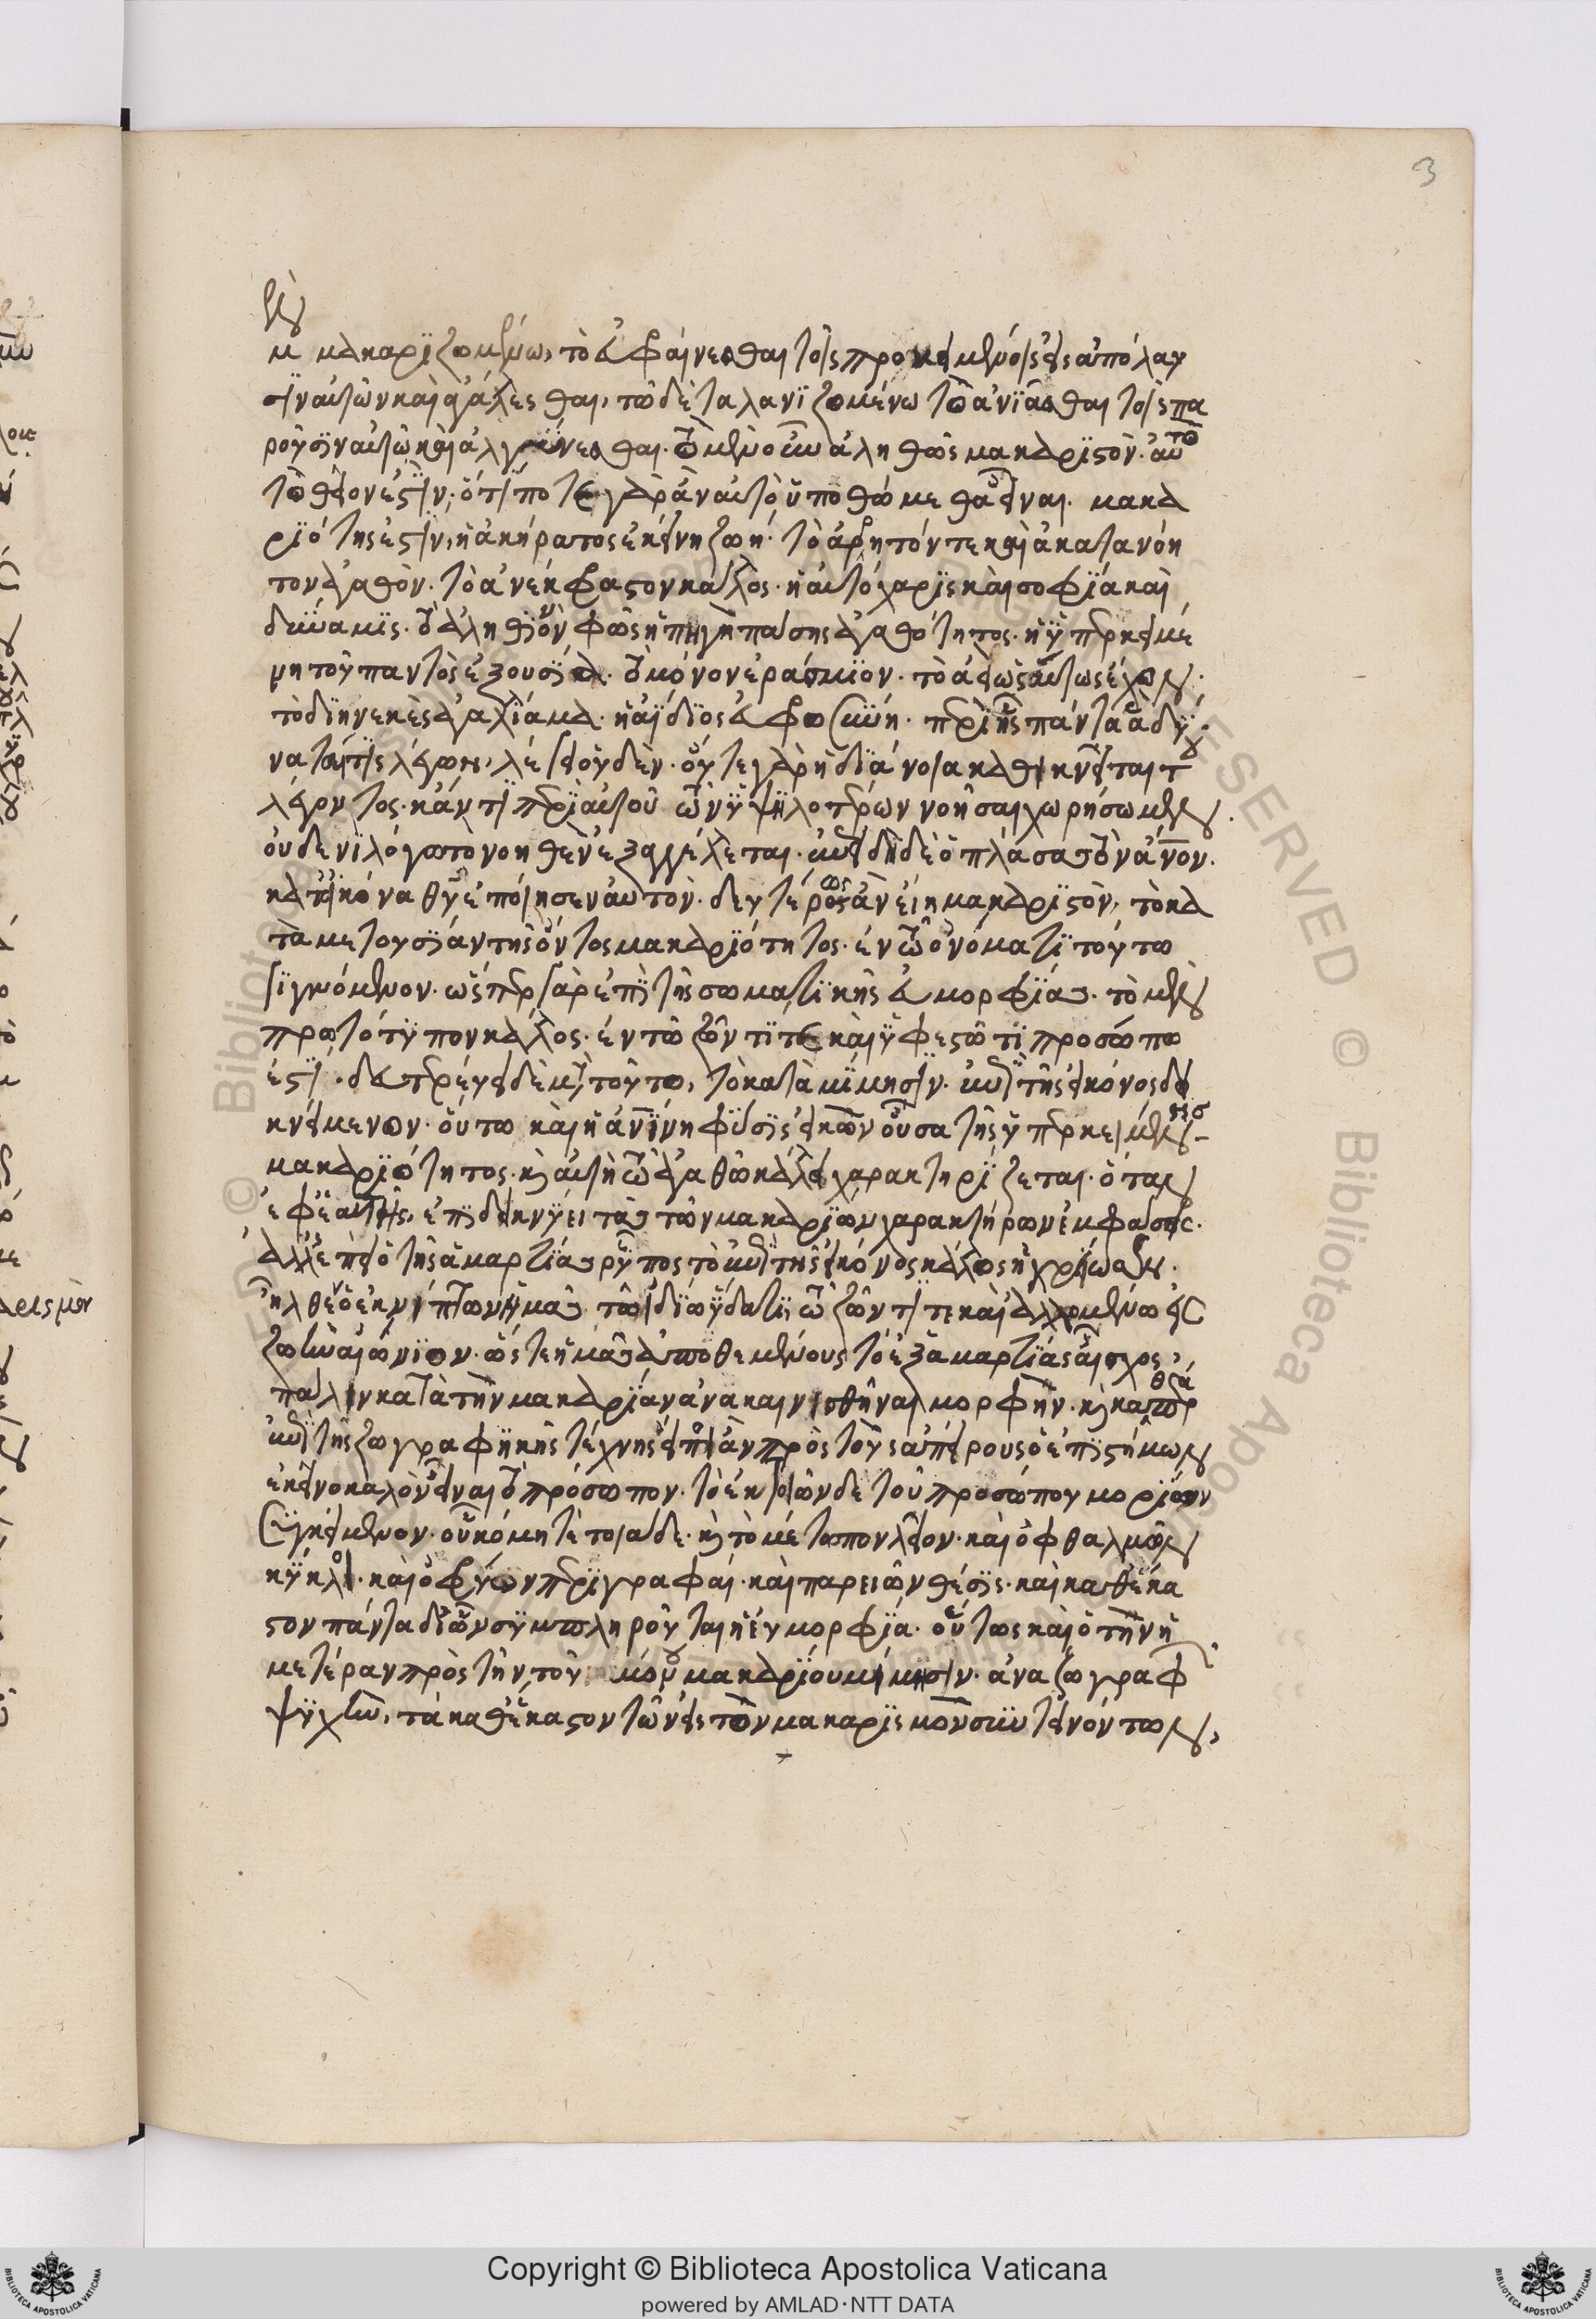 μὲν
μακαριζομένω, τὸ εὐφραίνεσθαι τοῖς προκειμένοις εἰς ἀπόλαυ
σιν αὐτῶν καὶ ἀγάλλεσθαι, τῶ δὲ ταλανϊζομένω τὸ ἀνϊᾶσθαι τοῖς πα
ροῦσϊν αὐτῶ καὶ ἀλγύνεσθαι. τὸ μὲν οὖν ἀληθῶς μακαρϊστὸν. αὐτὸ
τὸ θεῖον ἐστϊν. ὅτι ποτε γὰρ ἂν αὐτὸ ὑποθώμεθα εἶναι. μακα
ρϊότης ἐστϊν, ἡ ἀκήρατος ἐκείνη ζωή. τὸ ἄρρητόν τε καὶ ἀκατανόη
τον ἀγαθὸν. τὸ ἀνέκφραστον κάλλος. ἡ αὐτόχαρϊς καὶ σοφϊά καὶ
δύναμϊς. τὸ ἀληθϊνὸν φῶς ἡ πηγὴ πάσης ἀγαθότητος. ἡ ὑπερκειμέ
νη τοῦ παντὸς ἐξουσϊα. τὸ μόνον ἐράσμϊον. τὸ ἀεὶ ὡσαύτως ἔχον.
τὸ διηνεκὲς ἀγαλλίαμα. ἡ ἀΐδϊος εὐφροσύνη. περὶ ἧς πάντα ἃ δύ
ναταί τϊς λέγων, λέγει οὐδὲν. οὔτε γὰρ ἡ διάνοια καθικνεῖται τοῦ
λέγοντος. κἄν τι περὶ αὐτοῦ τῶν ὑψηλοτέρων νοῆσαι χωρήσωμεν.
οὐδενὶ λόγω τὸ νοηθὲν ἐξαγγέλλεται. ἐπειδὴ δὲ ὁ πλάσας τὸν ἄνον.
κατ εἰκόνα θῦ ἐποίησεν αὐτὸν. δευτέρως ἂν εἴη μακαρϊστὸν, τὸ κα
τὰ μετουσϊάν τῆς ὄντος μακαρϊότητος. ἐν τῶ ὀνόματϊ τούτω
γϊγνόμενον. ὥσπερ γὰρ ἐπὶ τῆς σωματϊκῆς εὐμορφϊάς. τὸ μὲν
πρωτότυπον κάλλος. ἐν τῶ ζῶντϊ τε καὶ ὑφεστῶτϊ προσώπω
ἐστὶ. δευτερεύει δὲ μετὰ τοῦτο, τὸ κατὰ μίμησϊν. ἐπὶ τῆς εἰκόνος δει
κνύμενον. οὕτω καὶ ἡ ἀνίνη φύσϊς εἰκὼν οὖσα τῆς ὑπερκειμένης
μακαρϊότητος. καὶ αὐτὴ τῶ ἀγαθῶ κάλλει χαρακτηρίζεται. ὅταν
ἐφ ἑαυτῆς, ἐπϊδεικνύει τὰς τῶν μακαρίων χαρακτήρων ἐμφάσεις.
ἀλλ ἐπεὶ ὁ τῆς ἁμαρτϊάς ρύπος τὸ ἐπὶ τῆς εἰκόνος κάλλος ἠχρείωσεν.
ἦλθεν ὁ ἐκνίπτων ἡμᾶς τῶ ἰδίω ὕδατϊ τῶ ζῶντί τε καὶ ἁλλομένω εἰς
ζωὴν αἰώνϊον. ὥστε ἡμᾶς ἀποθεμένους τὸ ἐξ ἁμαρτϊάς αἶσχος,
πάλιν κατὰ τὴν μακαρϊάν ἀνακαινισθῆναι μορφὴν. καὶ καθάπερ
ἐπὶ τῆς ζωγραφϊκῆς τέχνης εἴποι ἂν πρὸς τοὺς ἀπείρους ὁ ἐπϊστήμων
ἐκεῖνο καλὸν εἶναι τὸ πρόσωπον. τὸ ἐκ τοιῶνδε τοῦ προσώπου μορίων
συγκείμενον. οὗ κόμη τὲ τοιάδε. καὶ τὸ μέτωπον λεῖον. καὶ ὀφθαλμῶν
κύκλοι. καὶ ὀφρύων περιγραφαί. καὶ παρειῶν θέσϊς. καὶ καθέκα
στον πάντα δι ὧν συμπληροῦται ἡ εὐμορφϊα. οὕτως καὶ ὁ τὴν ἡ
μετέραν πρὸς τὴν τοῦ μόνου μακαρίου μίμησιν. ἀναζωγραφῶν
ψυχὴν, τὰ καθέκαστον τῶν εἰς τὸν μακαρισμὸν συντεινόντων,